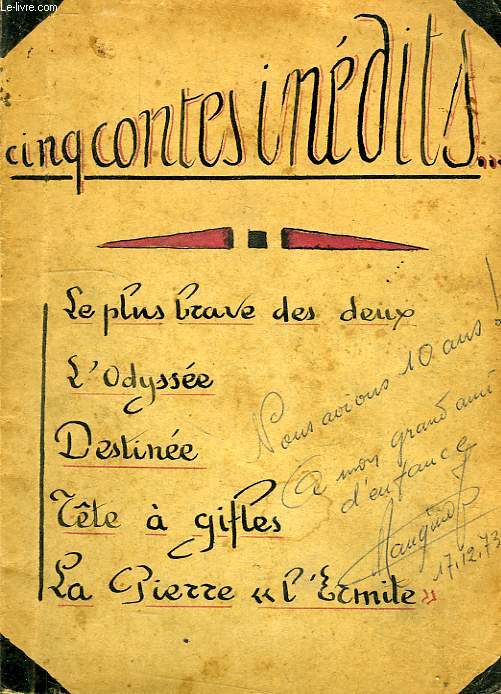 Le-livre.com
cinq contes inédits...
Le plus brave des deux
L'Odyssée
Destinée
Tête à gifles
La Pierre « l'Ermite »
Nous avions 10 ans !
à mon grand ami
d'enfance
17.12.73